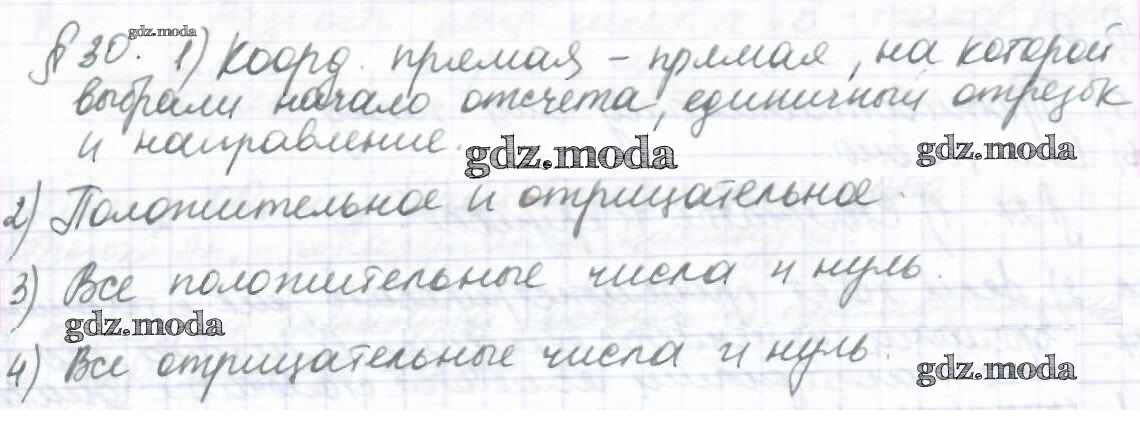 gdz.moda
§ 30. 1) Коорд. прямая – прямая, на которой
выбрали начало отсчета, единичный отрезок
и направление.
gdz.moda gdz.moda
2) Положительное и отрицательное.
3) Все положительные числа и нуль.
gdz.moda
4) Все отрицательные числа и нуль.
gdz.moda